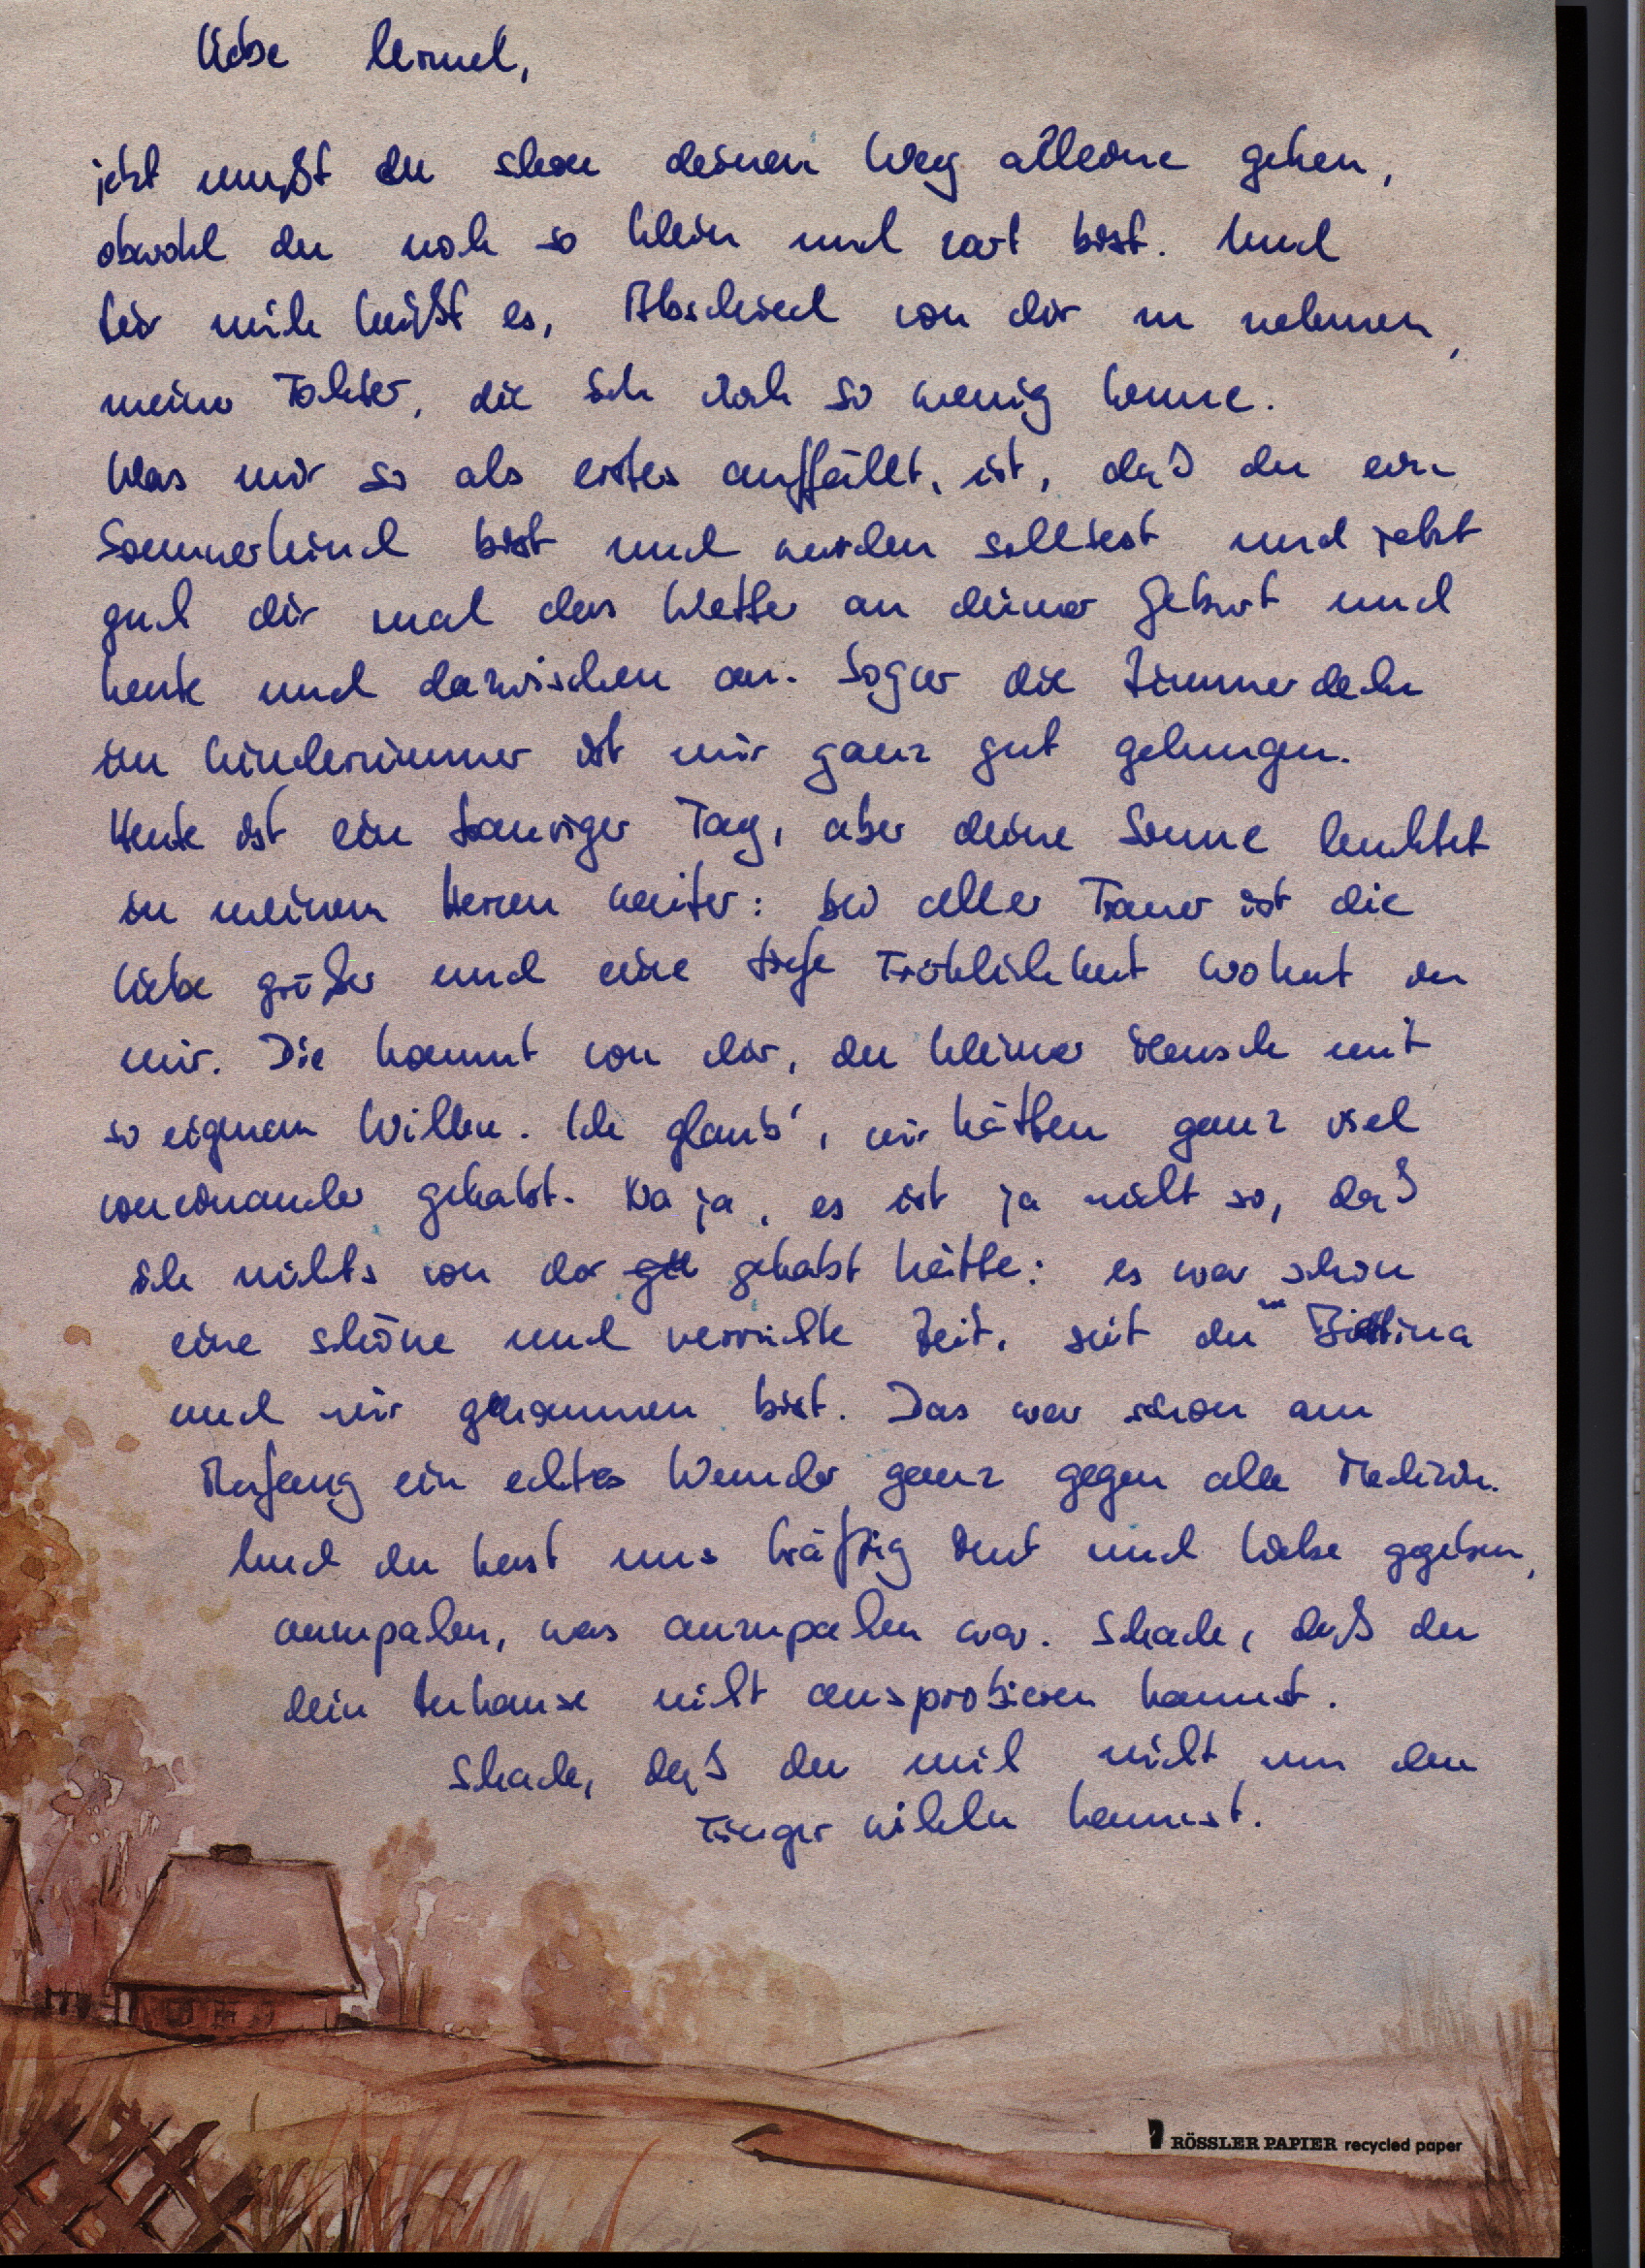 Liebe
jetzt mußt du schon deinen Weg alleine gehen,
obwohl du noch so klein und zart bist. Und
für mich heißt es, Abschied von dir zu nehmen,
meiner Tochter, die ich doch so wenig kenne.
Was mir so als erstes auffällt, ist, daß du ein
Sommerkind bist und werden solltest und jetzt
guck dir mal das Wetter an deiner Geburt und
heute und dazwischen an. Sogar die Zimmerdecke
im Kinderzimmer ist mir ganz gut gelungen.
Heute ist ein trauriger Tag, aber deine Sonne leuchtet
in meinem Herzen weiter: bei aller Trauer ist die
Liebe größer und eine tiefe Fröhlichkeit wohnt in
mir. Die kommt von dir, du kleiner Mensch mit
so eigenem Willen. Ich glaub', wir hätten ganz viel
voneinander gehabt. Na ja, es ist ja nicht so, daß
ich nichts von dir gehabt hätte: es war schon
eine schöne und verrückte Zeit, seit du zu Bettina
und mir gekommen bist. Das war schon am
Anfang ein echtes Wunder ganz gegen alle Medizin.
Und du hast uns kräftig Mut und Liebe gegeben,
anzupacken, was anzupacken war. Schade, daß du
dein Zuhause nicht ausprobieren kannst.
Schade, daß du mich nicht um den
Finger wickeln kannst.
RÖSSLER PAPIER recycled paper